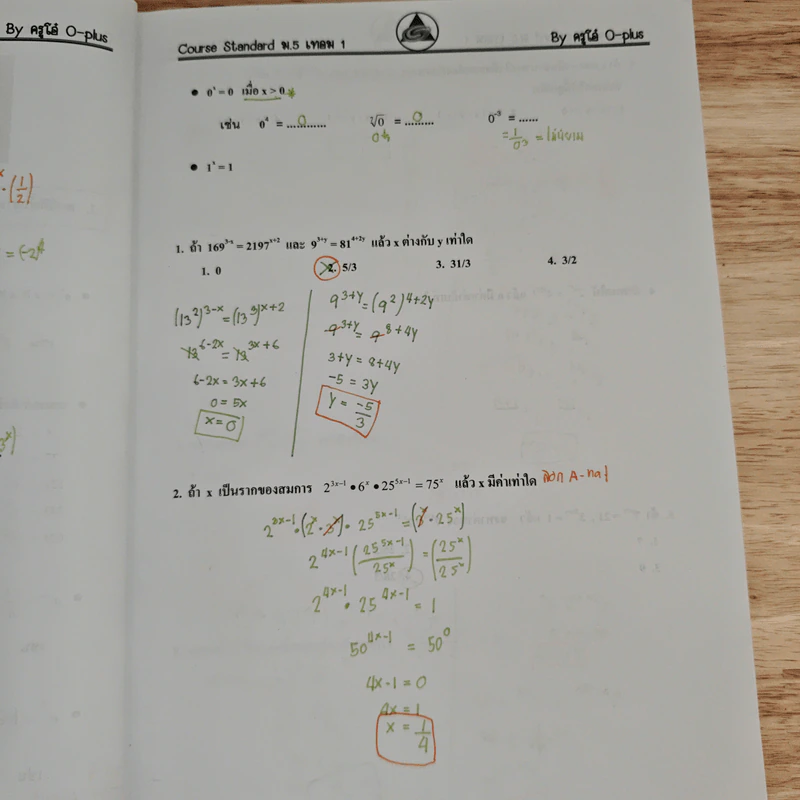 By ครูโอ๋ O-plus
Course Standard ม.5 เทอม 1
By ครูโอ๋ O-plus
• 0ˣ = 0 เมื่อ x > 0 *
เช่น 0⁴ = .....0....... ⁷√0 = ...0...... 0⁻⁵ = ......
= 1/0⁵ = ไม่นิยาม
• 1ˣ = 1
(1/2)
1. ถ้า 169^(3-x) = 2197^(x+2) และ 9^(3+y) = 81^(4+2y) แล้ว x ต่างกับ y เท่าใด
1. 0 2. 5/3 3. 31/3 4. 3/2
(13²)^(3-x) = (13³)^(x+2)
13^(6-2x) = 13^(3x+6)
6-2x = 3x+6
0 = 5x
x = 0
9^(3+y) = (9²)^(4+2y)
9^(3+y) = 9^(8+4y)
3+y = 8+4y
-5 = 3y
y = -5/3
2. ถ้า x เป็นรากของสมการ 2^(3x-1) • 6^x • 25^(5x-1) = 75^x แล้ว x มีค่าเท่าใด
2^(3x-1) · (2^x · 3^x) · 25^(5x-1) = (3^x · 25^x)
2^(4x-1) (25^(5x-1)/25^x) = (25^x/25^x)
2^(4x-1) · 25^(4x-1) = 1
50^(4x-1) = 50^0
4x-1 = 0
4x = 1
x = 1/4